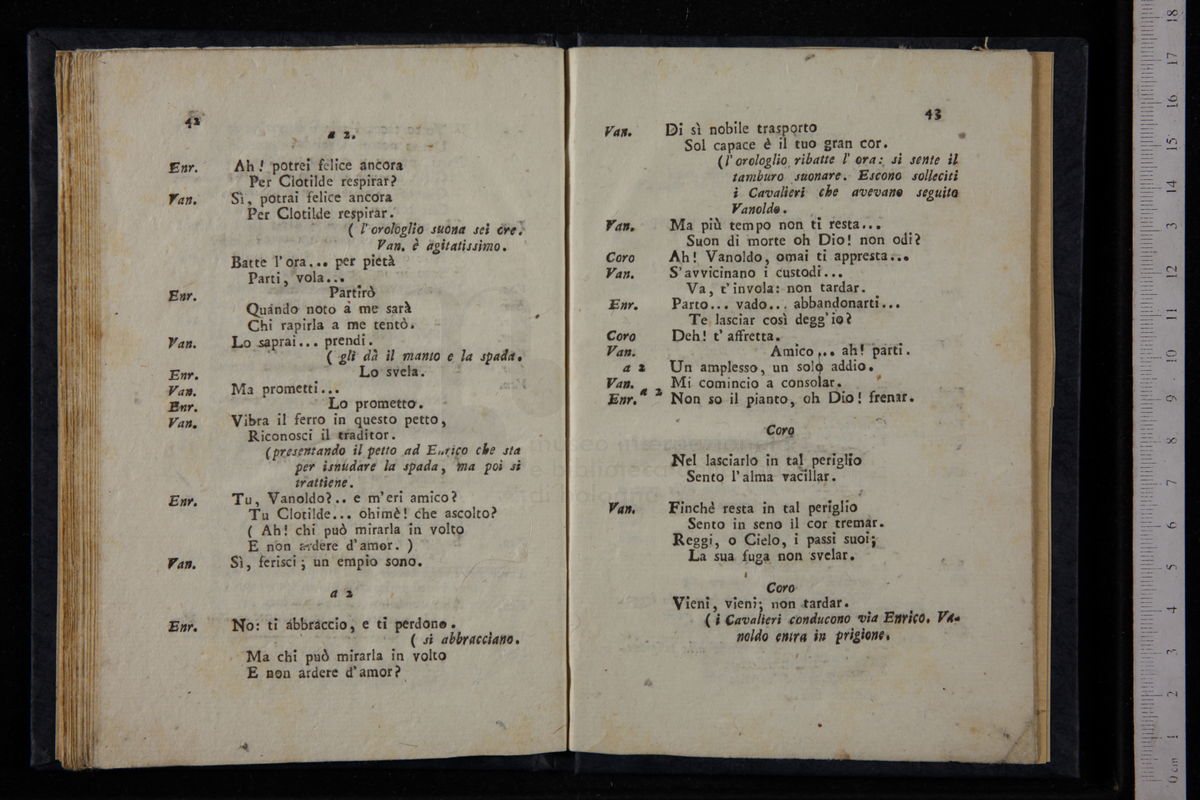 42
a 2.
Enr. Ah! potrei felice ancora
Per Clotilde respirar?
Van. Sì, potrai felice ancora
Per Clotilde respirar.
( l'orologlio suona sei ore.
Van. è agitatissimo.
Batte l'ora... per pietà
Parti, vola...
Enr. Partirò
Quando noto a me sarà
Chi rapirla a me tentò.
Van. Lo saprai... prendi.
( gli dà il manto e la spada.
Enr. Lo svela.
Van. Ma prometti...
Enr. Lo prometto.
Van. Vibra il ferro in questo petto,
Riconosci il traditor.
(presentando il petto ad Enrico che sta
per isnudare la spada, ma poi si
trattiene.
Enr. Tu, Vanoldo?.. e m'eri amico?
Tu Clotilde... ohimè! che ascolto?
( Ah! chi può mirarla in volto
E non ardere d'amor. )
Van. Sì, ferisci; un empio sono.
a 2
Enr. No: ti abbraccio, e ti perdono.
( si abbracciano.
Ma chi può mirarla in volto
E non ardere d'amor?
43
Van. Di sì nobile trasporto
Sol capace è il tuo gran cor.
(l'orologlio ribatte l'ora: si sente il
tamburo suonare. Escono solleciti
i Cavalieri che avevano seguito
Vanoldo.
Van. Ma più tempo non ti resta...
Suon di morte oh Dio! non odi?
Coro Ah! Vanoldo, omai ti appresta...
Van. S'avvicinano i custodi...
Va, t'invola: non tardar.
Enr. Parto... vado... abbandonarti...
Te lasciar così degg'io?
Coro Deh! t'affretta.
Van. Amico... ah! parti.
a 2 Un amplesso, un solo addio.
Van. Mi comincio a consolar.
Enr. a 2 Non so il pianto, oh Dio! frenar.
Coro
Nel lasciarlo in tal periglio
Sento l'alma vacillar.
Van. Finchè resta in tal periglio
Sento in seno il cor tremar.
Reggi, o Cielo, i passi suoi;
La sua fuga non svelar.
Coro
Vieni, vieni; non tardar.
( i Cavalieri conducono via Enrico. Va-
noldo entra in prigione.
0 cm 1 2 3 4 5 6 7 8 9 10 11 12 13 14 15 16 17 18